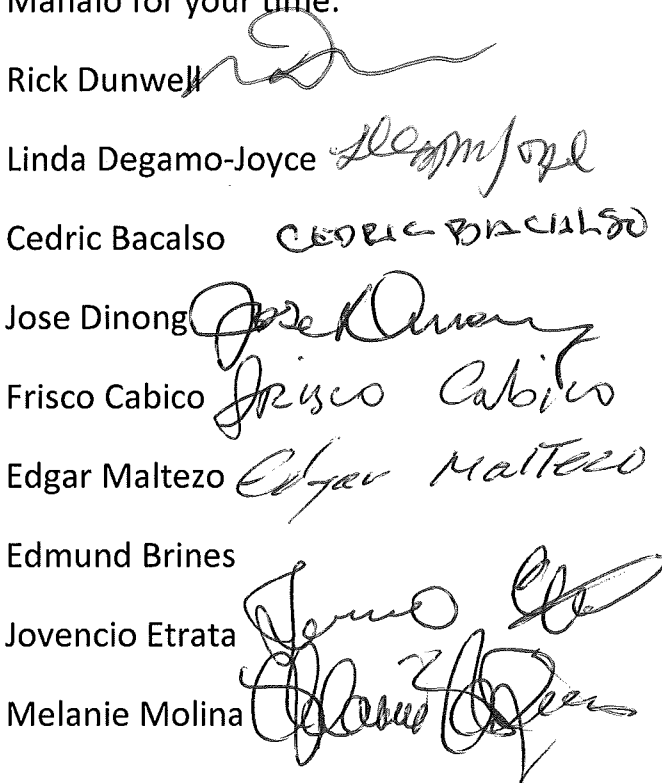 Mahalo for your time.
Rick Dunwell
Linda Degamo-Joyce
Cedric Bacalso CEDRIC BACALSO
Jose Dinong Jose
Frisco Cabico Frisco Cabico
Edgar Maltezo Edgar Maltezo
Edmund Brines
Jovencio Etrata
Melanie Molina